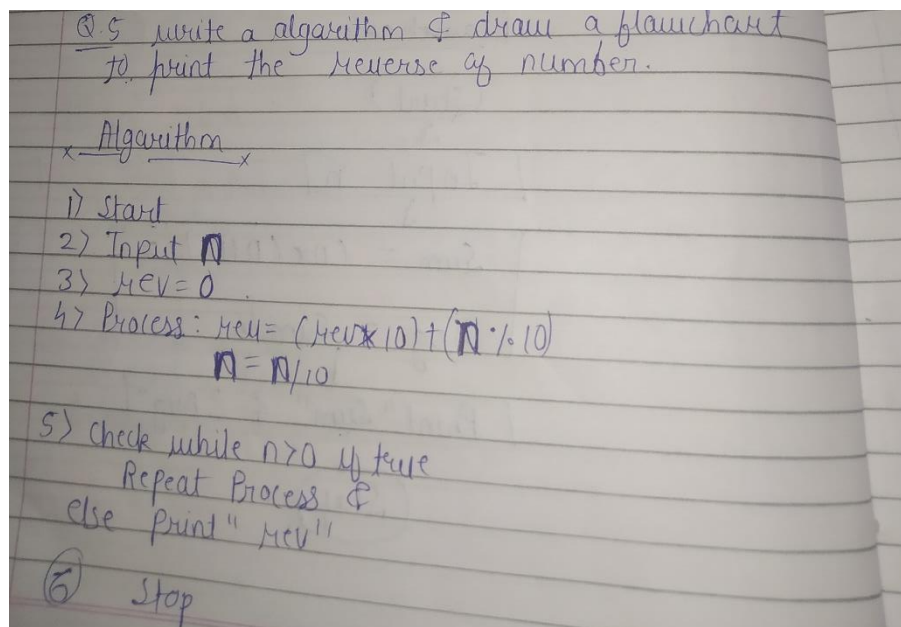 Q.5 write a algorithm & draw a flowchart
to print the reverse of number.
x Algorithm x
1) Start
2) Input n
3) rev = 0
4) Process : rev = (rev * 10) + (n % 10)
n = n/10
5) check while n>0 if true
Repeat Process &
else print " rev"
6 Stop